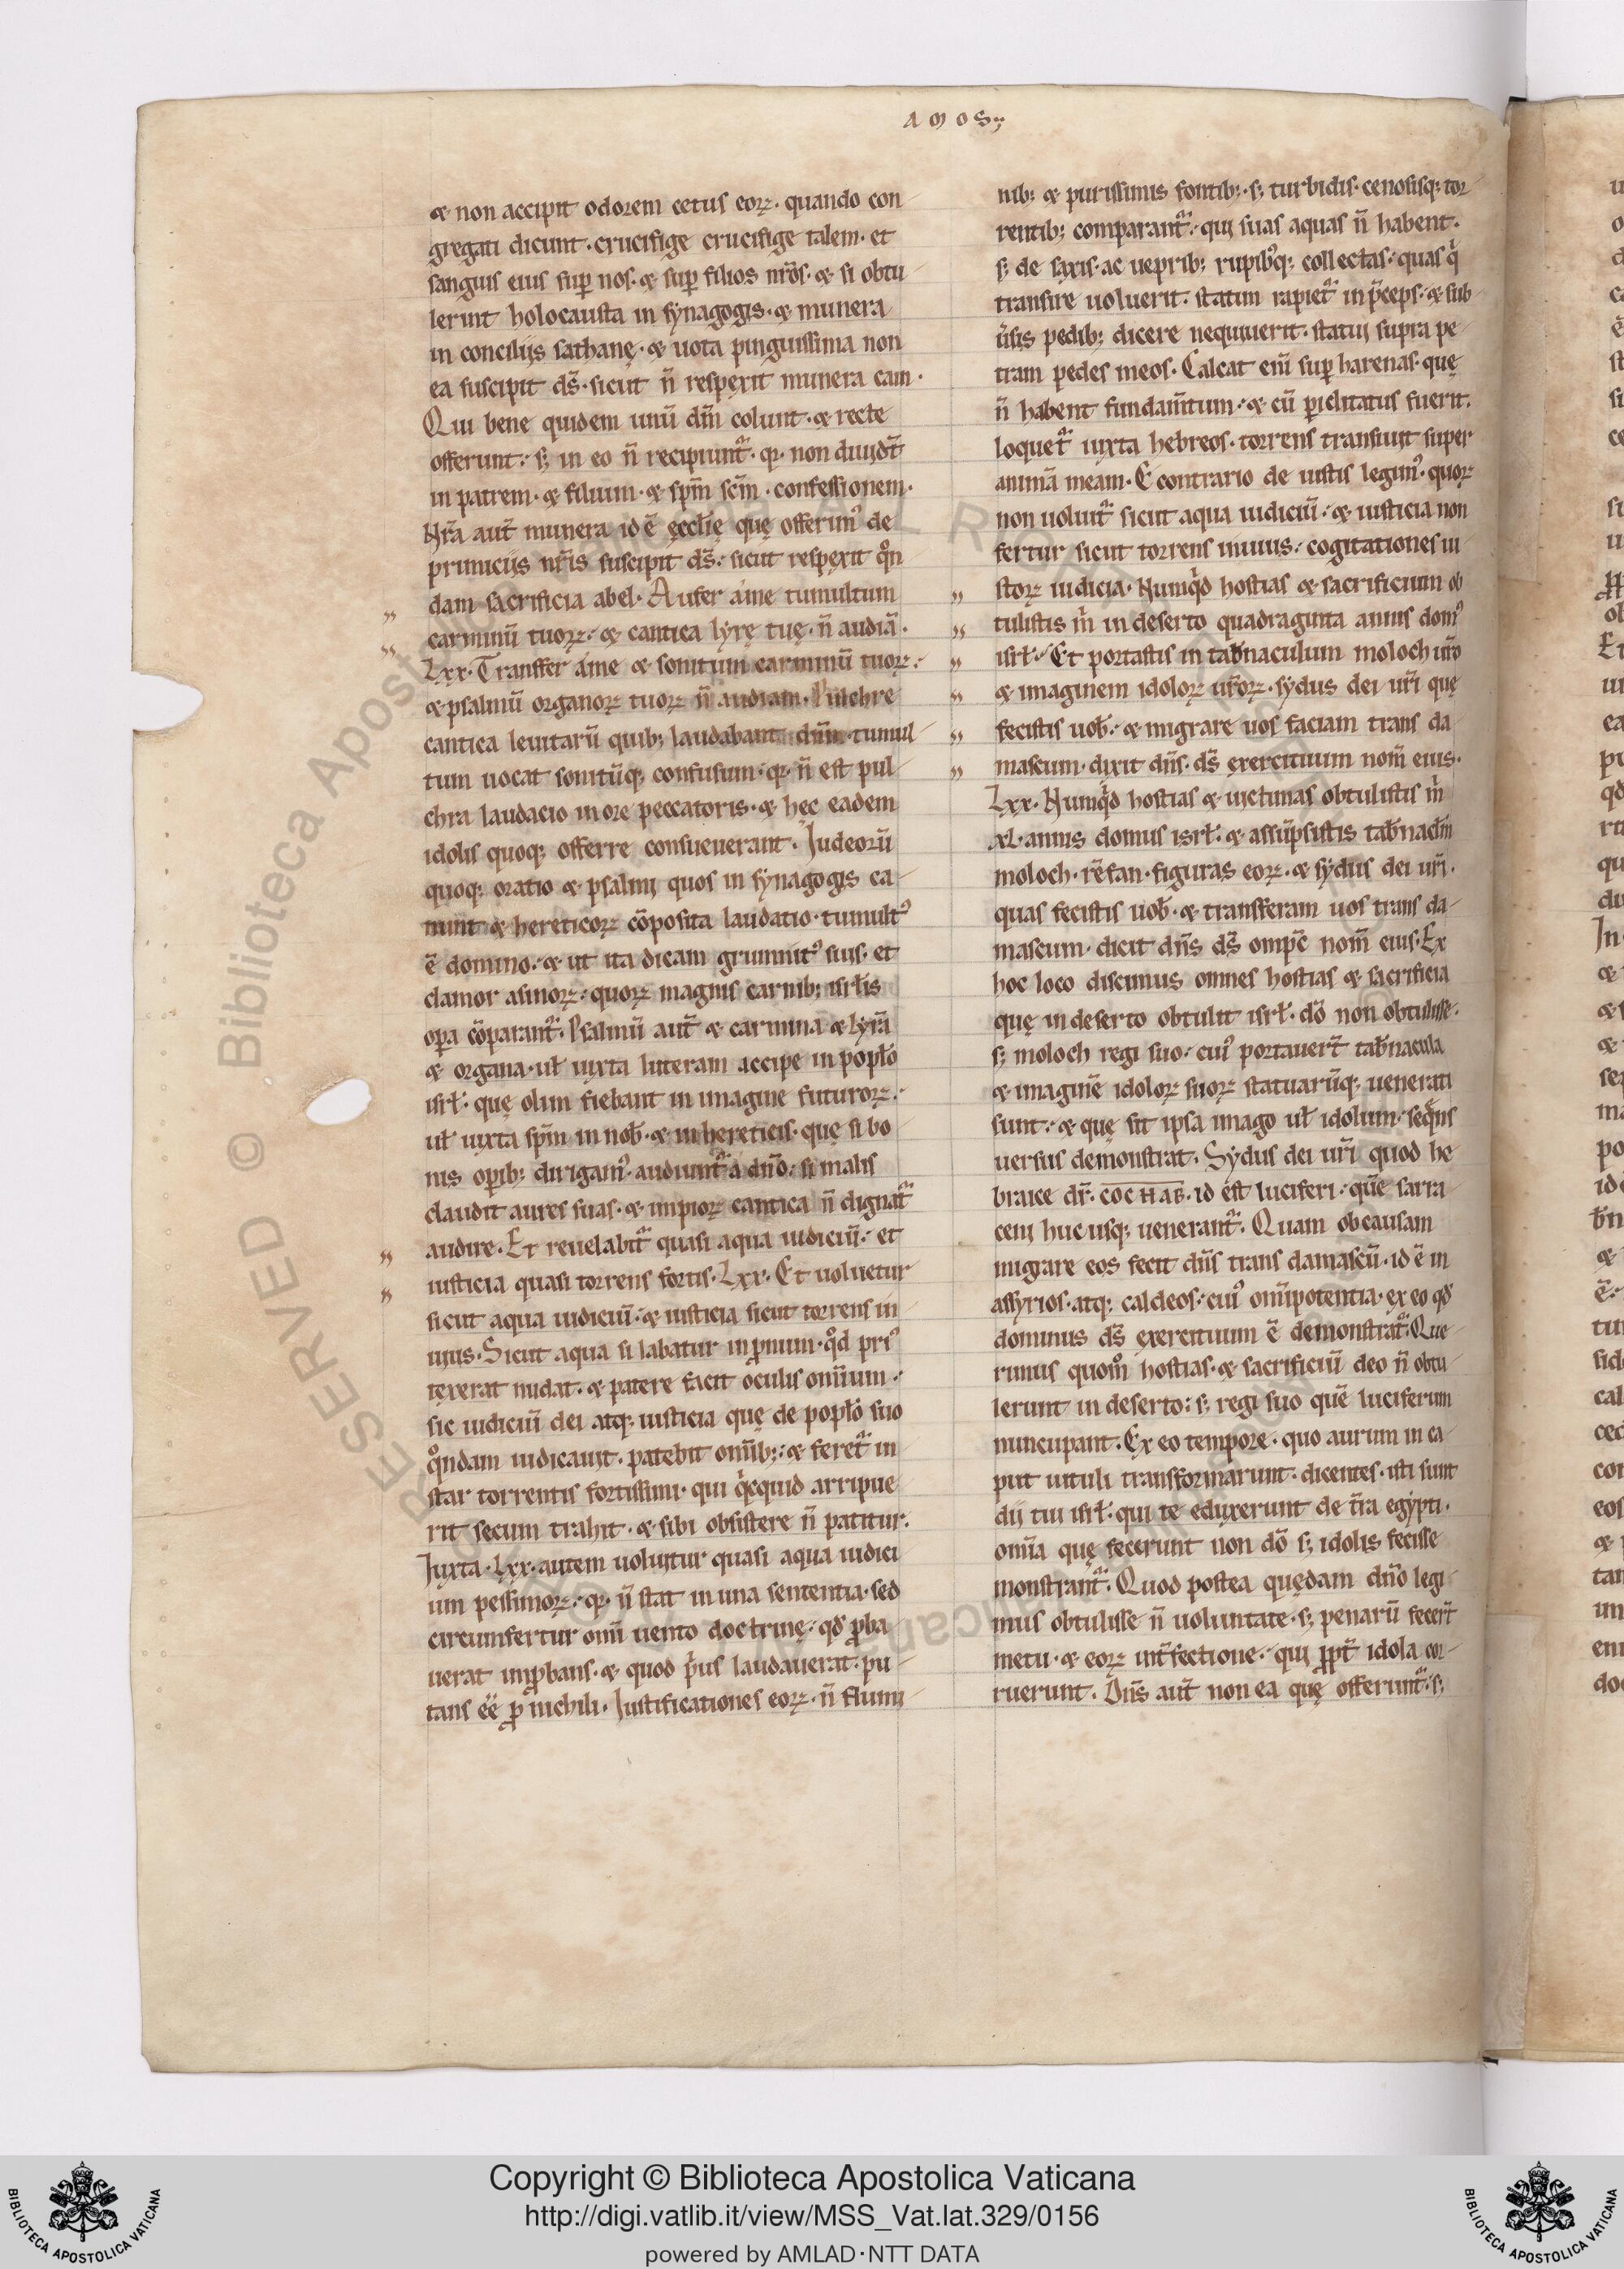 AMOS;
& non accipit odorem cetus eoꝝ. quando con
gregati dicunt. crucifige crucifige talem. et
sanguis eius sup̄ nos. & sup̄ filios nr̄os. & si obtu
lerint holocausta in synagogis. & munera
in conciliis sathanę. & uota pinguissima non
ea suscipit ds̄. sicut n̄ respexit munera cain.
Qui bene quidem unū dm̄ colunt. & recte
offerunt. s; in eo n̄ recipiunt᷑. qꝛ non diuidt̄
in patrem. & filium. & spm̄ scm̄. confessionem.
Nr̄a aut̄ munera id ē ęcclię quę offerimꝰ de
primiciis nr̄is suscipit ds̄. sicut respexit qͦn
dam sacrificia abel. Aufer a me tumultum
carminū tuoꝝ. & cantica lyrę tuę. n̄ audiā.
Lxx. Transfer a me & sonitum carminū tuoꝝ.
& psalmū organoꝝ tuoꝝ n̄ audiam. Pulchre
cantica leuitarū quib; laudabant dn̄m. tumul
tum uocat sonitūq; confusum. qꝛ n̄ est pul
chra laudacio in ore peccatoris. & hęc eadem
idolis quoq; offerre consueuerant. Iudeorū
quoq; oratio & psalmi quos in synagogis ca
nunt & hereticoꝝ cōposita laudatio. tumultꝰ
ē domino. & ut ita dicam grunnitꝰ suis. et
clamor asinoꝝ. quoꝝ magnis carnib; isrl̄is
oꝑa cōparant᷑. Psalmū aut̄ & carmina & lyrā
& organa. ul̄ iuxta litteram accipe in popl̄o
isrl̄. quę olim fiebant in imagine futuroꝝ.
ul̄ iuxta spm̄ in nob̄. & in hereticis. quę si bo
nis oꝑib; dirigamꝰ. audiunt᷑ a dn̄o. si malis
claudit aures suas. & impioꝝ cantica n̄ dignat᷑
audire. Et reuelabit᷑ quasi aqua iudiciū. et
iusticia quasi torrens fortis. Lxx. Et uoluetur
sicut aqua iudiciū. & iusticia sicut torrens in
uius. Sicut aqua si labatur in ꝓnum. qͦd priꝰ
texerat nudat. & patere facit oculis omnium.
sic iudiciū dei atq; iusticia quę de popl̄o suo
qͦndam iudicauit. patebit omīb;. & feret᷑ in
star torrentis fortissimi. qui qͥcquid arripue
rit secum trahit. & sibi obsistere n̄ patitur.
Iuxta. Lxx. autem uoluitur quasi aqua iudici
um pessimoꝝ. qꝛ n̄ stat in una sententia. sed
circumfertur omī uento doctrinę. qd̄ ꝓba
uerat imꝓbans. & quod pͥus laudauerat. pu
tans eē̄ ꝓ nichili. Iustificationes eoꝝ. n̄ flumi
nib; & purissimis fontib;. s; turbidis. cenosisq; tor
rentib; comparant᷑. qui suas aquas n̄ habent.
s; de saxis. ac ueprib; rupibꝰq; collectas. quas qͥ
transire uoluerit. statim rapiet᷑ in p̄ceps. & sub
uͥsis pedib; dicere nequiuerit. statui supra pe
tram pedes meos. Calcat enī sup̄ harenas. quę
n̄ habent fundam̄tum. & cū ꝑiclitatus fuerit.
loquet᷑ iuxta hebreos. torrens transiuit super
animā meam. E contrario de iustis legimꝰ. quoꝝ
non uoluit᷑ sicut aqua iudiciū. & iusticia non
fertur sicut torrens inuius. cogitationes iu
stoꝝ iudicia. Numqͥd hostias & sacrificium ob
tulistis m̄ in deserto quadraginta annis domꝰ
isrl̄. Et portastis in tab̄naculum moloch ur̄o
& imaginem idoloꝝ ur̄oꝝ. sydus dei ur̄i quę
fecistis uob̄. & migrare uos faciam trans da
mascum. dixit dn̄s. ds̄ exercituum nom̄ eius.
Lxx. Numqͥd hostias & uictimas obtulistis m̄
xl. annis domus isrl̄. & assūpsistis tab̄nacl̄m
moloch. rēfan. figuras eoꝝ. & sydus dei ur̄i.
quas fecistis uob̄. & transferam uos trans da
mascum. dicit dn̄s ds̄ omp̄c nom̄ eius. Ex
hoc loco discimus omnes hostias & sacrificia
quę in deserto obtulit isrl̄. dō non obtulisse.
s; moloch regi suo. cuiꝰ portauert̄ tab̄nacula
& imaginē idoloꝝ suoꝝ statuarūq; uenerati
sunt. & quę sit ipsa imago ul̄ idolum. seqͤns
uersus demonstrat. Sydus dei ur̄i quod he
braice dr̄. COCHAB. id est luciferi. quē sarra
ceni huc usq; uenerant᷑. Quam ob causam
migrare eos fecit dn̄s trans damascū. id ē in
assyrios. atq; caldeos. cuiꝰ omīpotentia. ex eo qd̄
dominus ds̄ exercituum ē demonstrat᷑. Que
rimus quomͦ hostias. & sacrificiū deo n̄ obtu
lerunt in deserto: s; regi suo quē luciferum
nuncupant. Ex eo tempore. quo aurum in ca
put uituli transformarunt. dicentes. isti sunt
dii tui isrl̄. qui te eduxerunt de tr̄a egypti.
omīa quę fecerunt non dō s; idolis fecisse
monstrant᷑. Quod postea quędam dn̄o legi
mus obtulisse n̄ uoluntate. s; penarū fecert̄
metu. & eoꝝ int̄fectione. qui ꝓpt̄ idola cor
ruerunt. Dn̄s aut̄ non ea quę offerunt᷑. s;
Copyright © Biblioteca Apostolica Vaticana
http://digi.vatlib.it/view/MSS_Vat.lat.329/0156
powered by AMLAD·NTT DATA
BIBLIOTECA APOSTOLICA VATICANA
BIBLIOTECA APOSTOLICA VATICANA